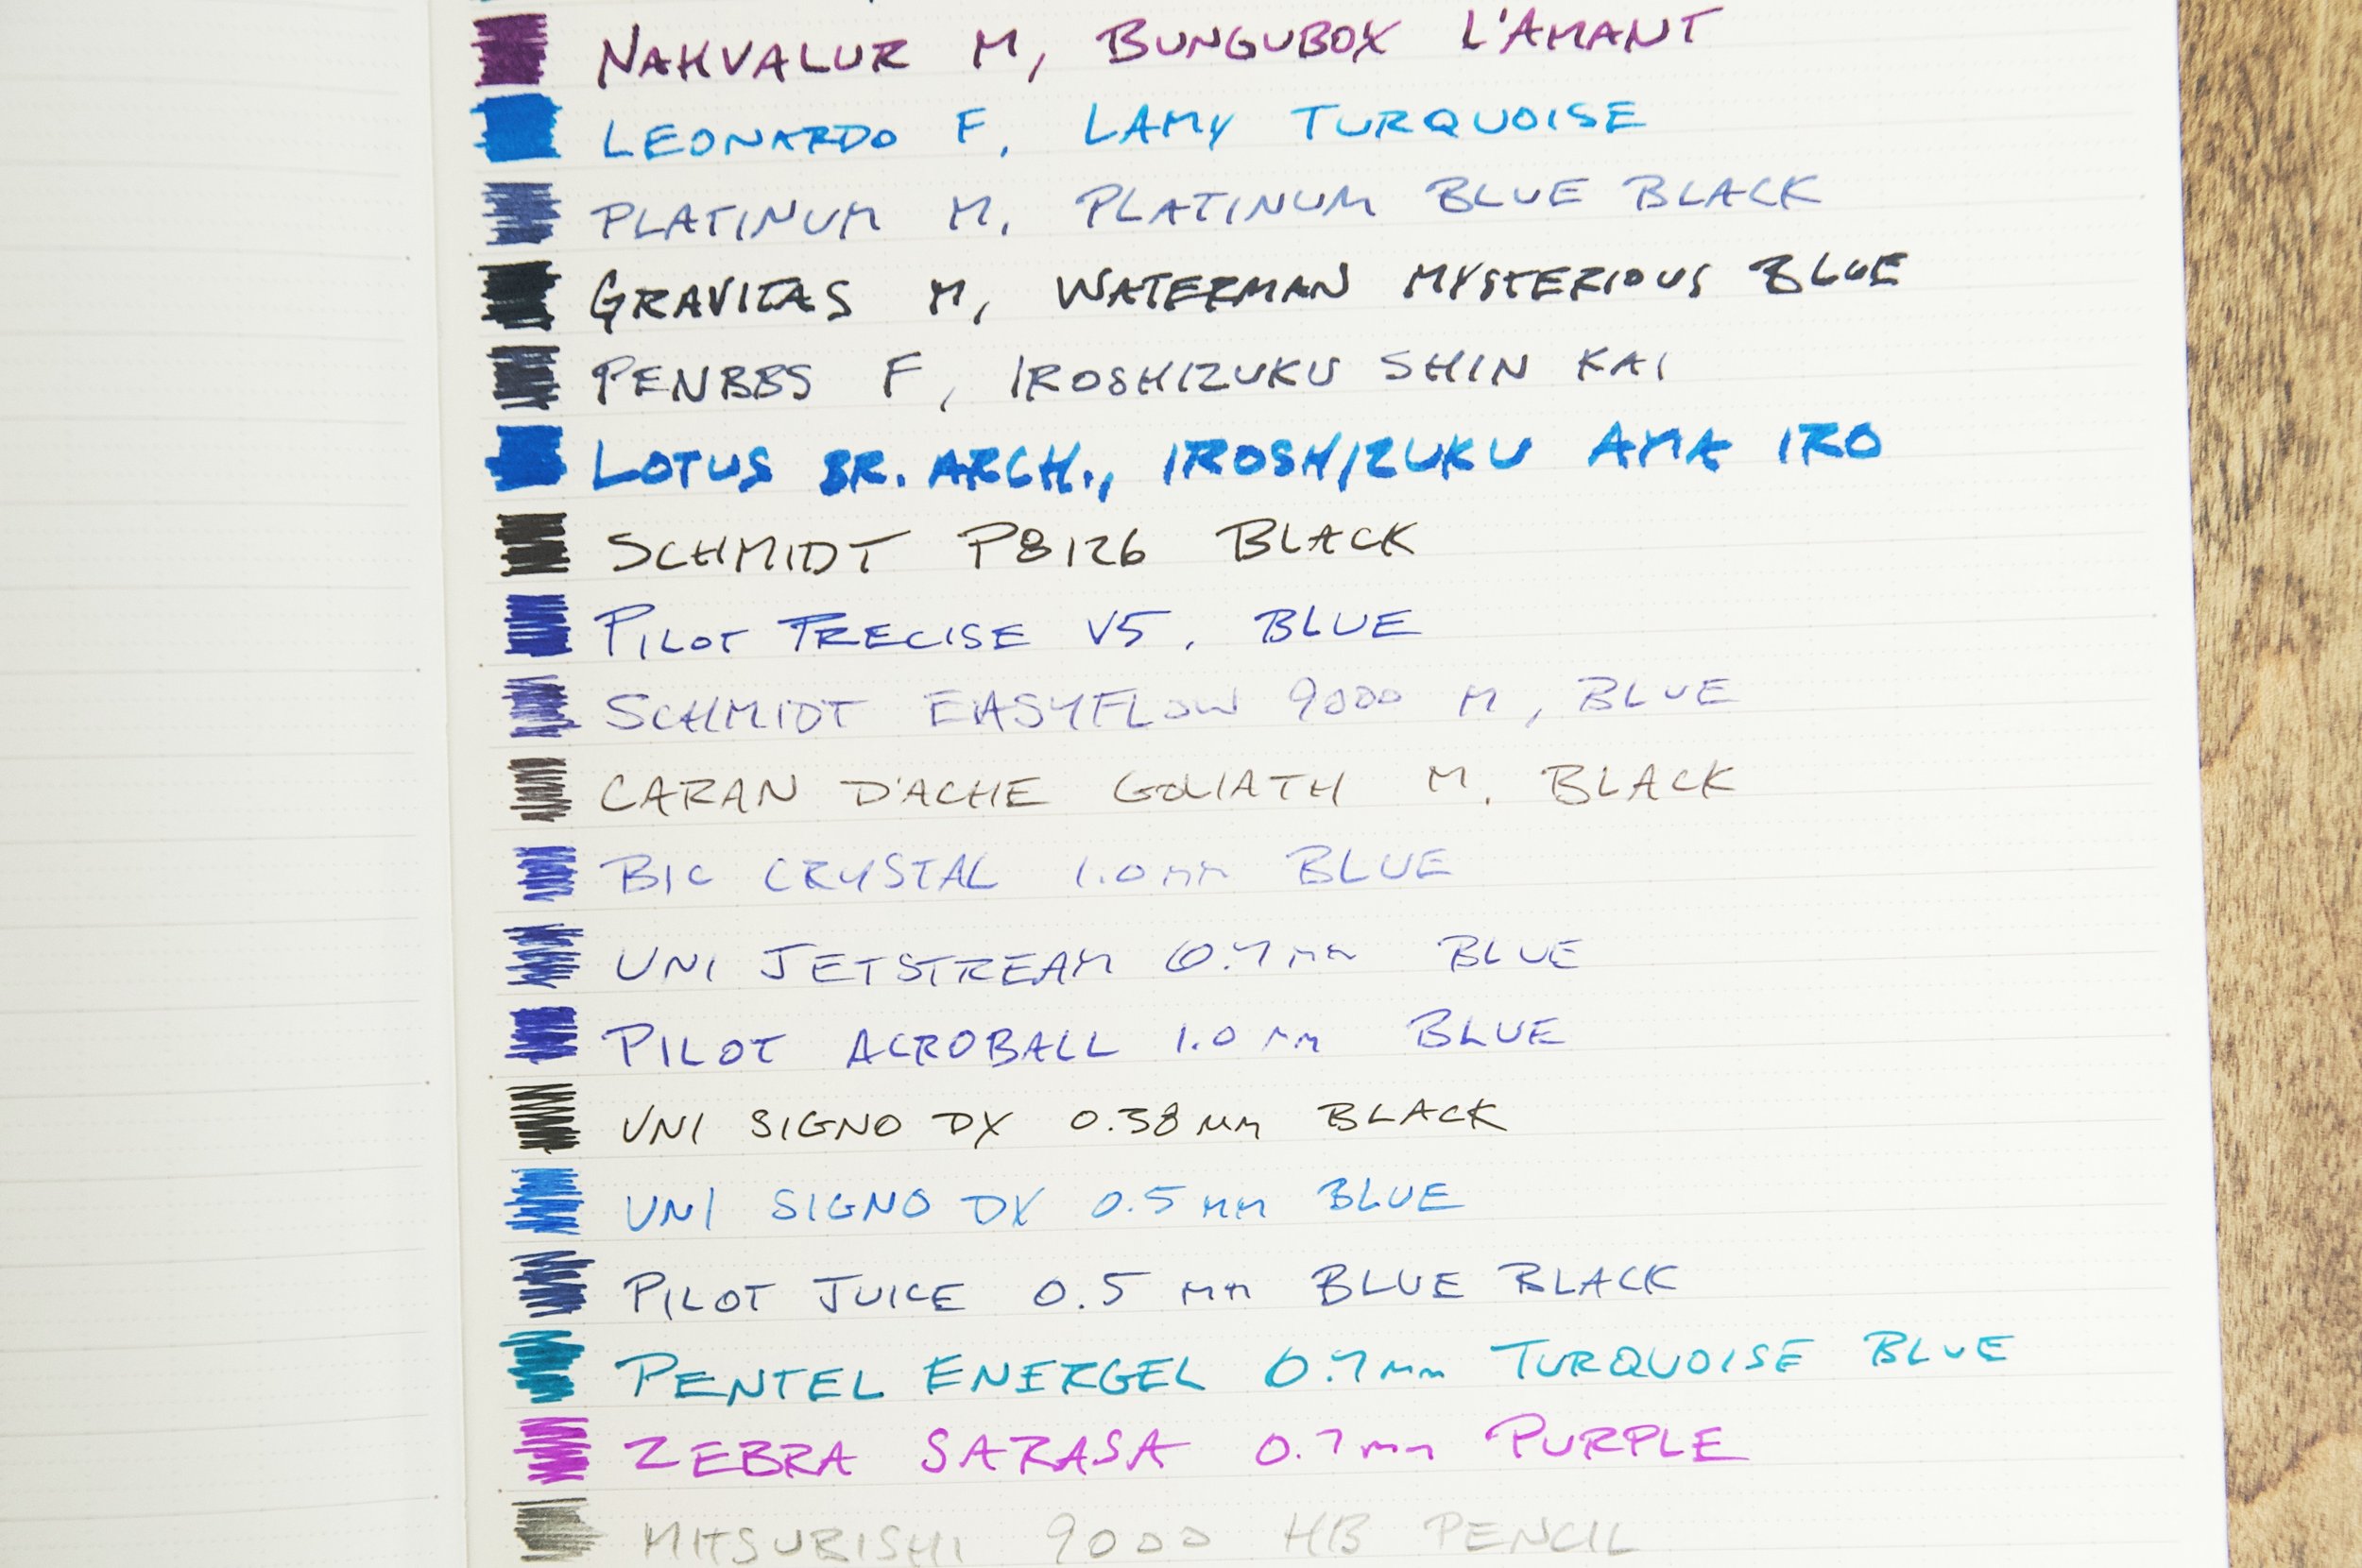 NAHVALUR M, BUNGUBOX L'AMANT
LEONARDO F, LAMY TURQUOISE
PLATINUM M, PLATINUM BLUE BLACK
GRAVITAS M, WATERMAN MYSTERIOUS BLUE
PENBBS F, IROSHIZUKU SHIN KAI
LOTUS BR. ARCH., IROSHIZUKU AMA IRO
SCHMIDT P8126 BLACK
PILOT PRECISE V5, BLUE
SCHMIDT EASYFLOW 9000 M, BLUE
CARAN D'ACHE GOLIATH M, BLACK
BIC CRYSTAL 1.0mm BLUE
UNI JETSTREAM 0.7mm BLUE
PILOT ACROBALL 1.0mm BLUE
UNI SIGNO DX 0.38mm BLACK
UNI SIGNO DX 0.5mm BLUE
PILOT JUICE 0.5 mm BLUE BLACK
PENTEL ENERGEL 0.7mm TURQUOISE BLUE
ZEBRA SARASA 0.7mm PURPLE
MITSUBISHI 9000 HB PENCIL